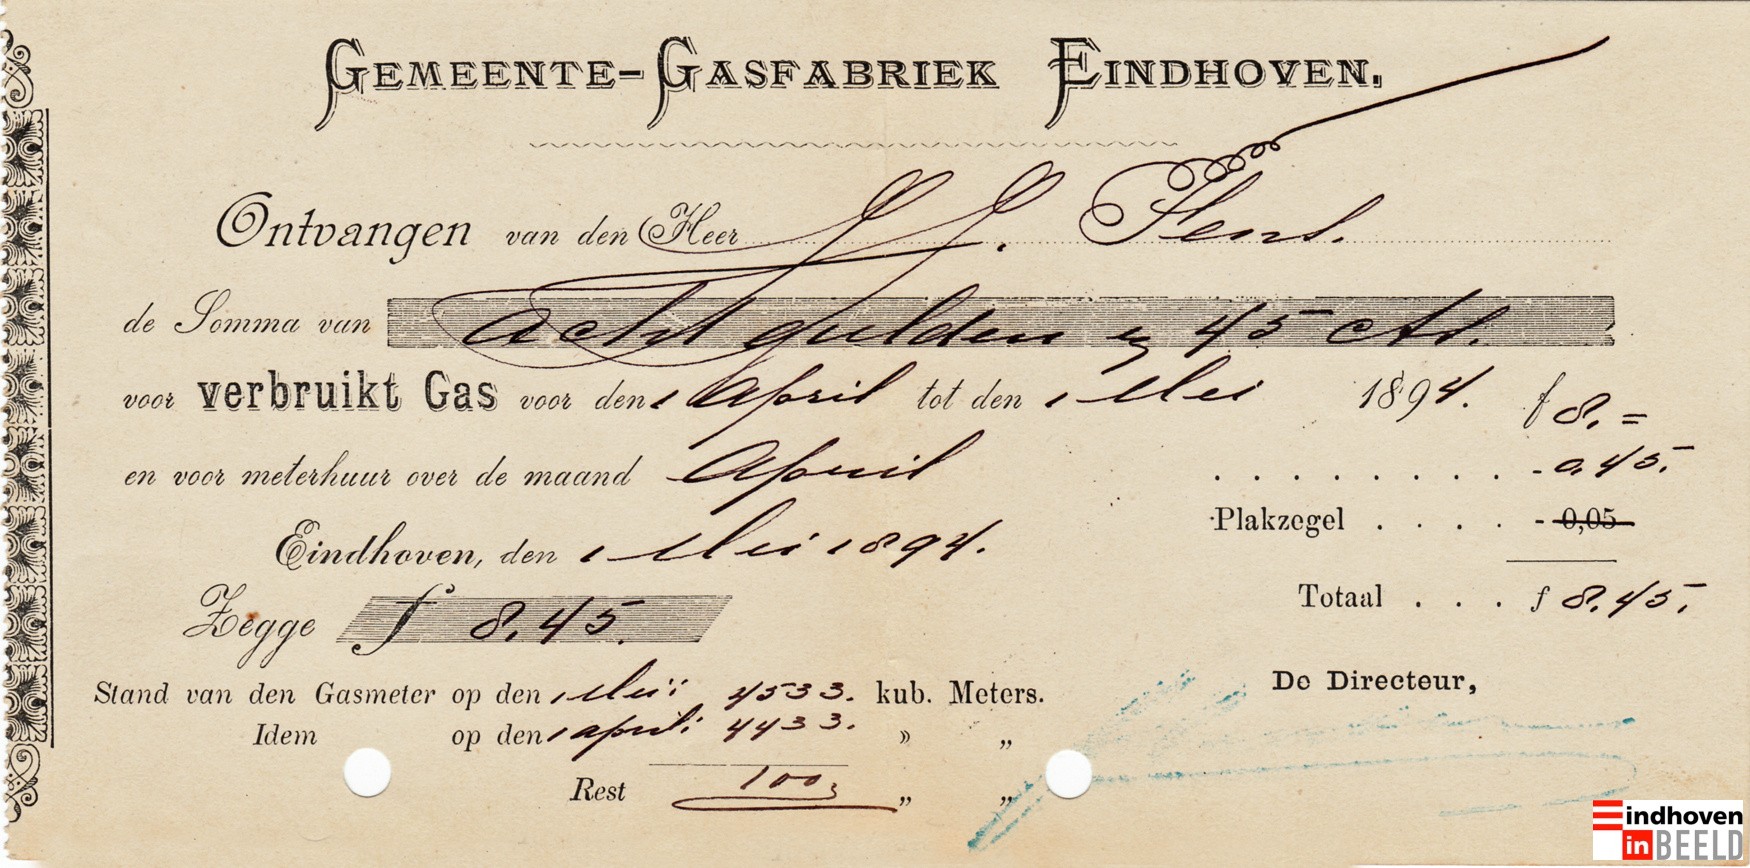 GEMEENTE-GASFABRIEK EINDHOVEN.
Ontvangen van den Heer
de Somma van Acht gulden en 45 ct.
voor verbruikt Gas voor den 1 April tot den 1 Mei 1894. f 8. =
en voor meterhuur over de maand April . . . . . . . . - 0,45.
Plakzegel . . . . - 0,05
Eindhoven, den 1 Mei 1894.
Totaal . . . f 8.45.
Zegge f 8.45.
De Directeur,
Stand van den Gasmeter op den 1 Mei 4533. kub. Meters.
Idem op den 1 april 4433. » „
Rest 100 „ „
Eindhoven
in BEELD